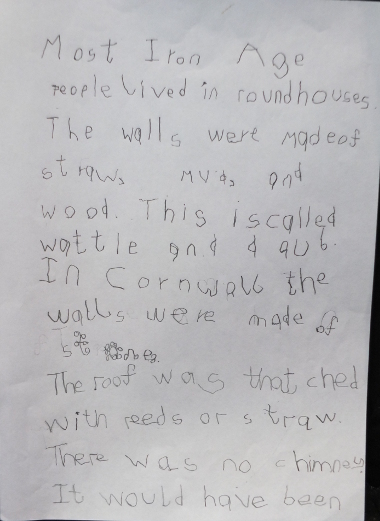 Most Iron Age
people lived in roundhouses.
The walls were made of
straw, mud, and
wood. This is called
wattle and daub.
In Cornwall the
walls were made of
The roof was thatched
with reeds or straw.
There was no chimney
It would have been